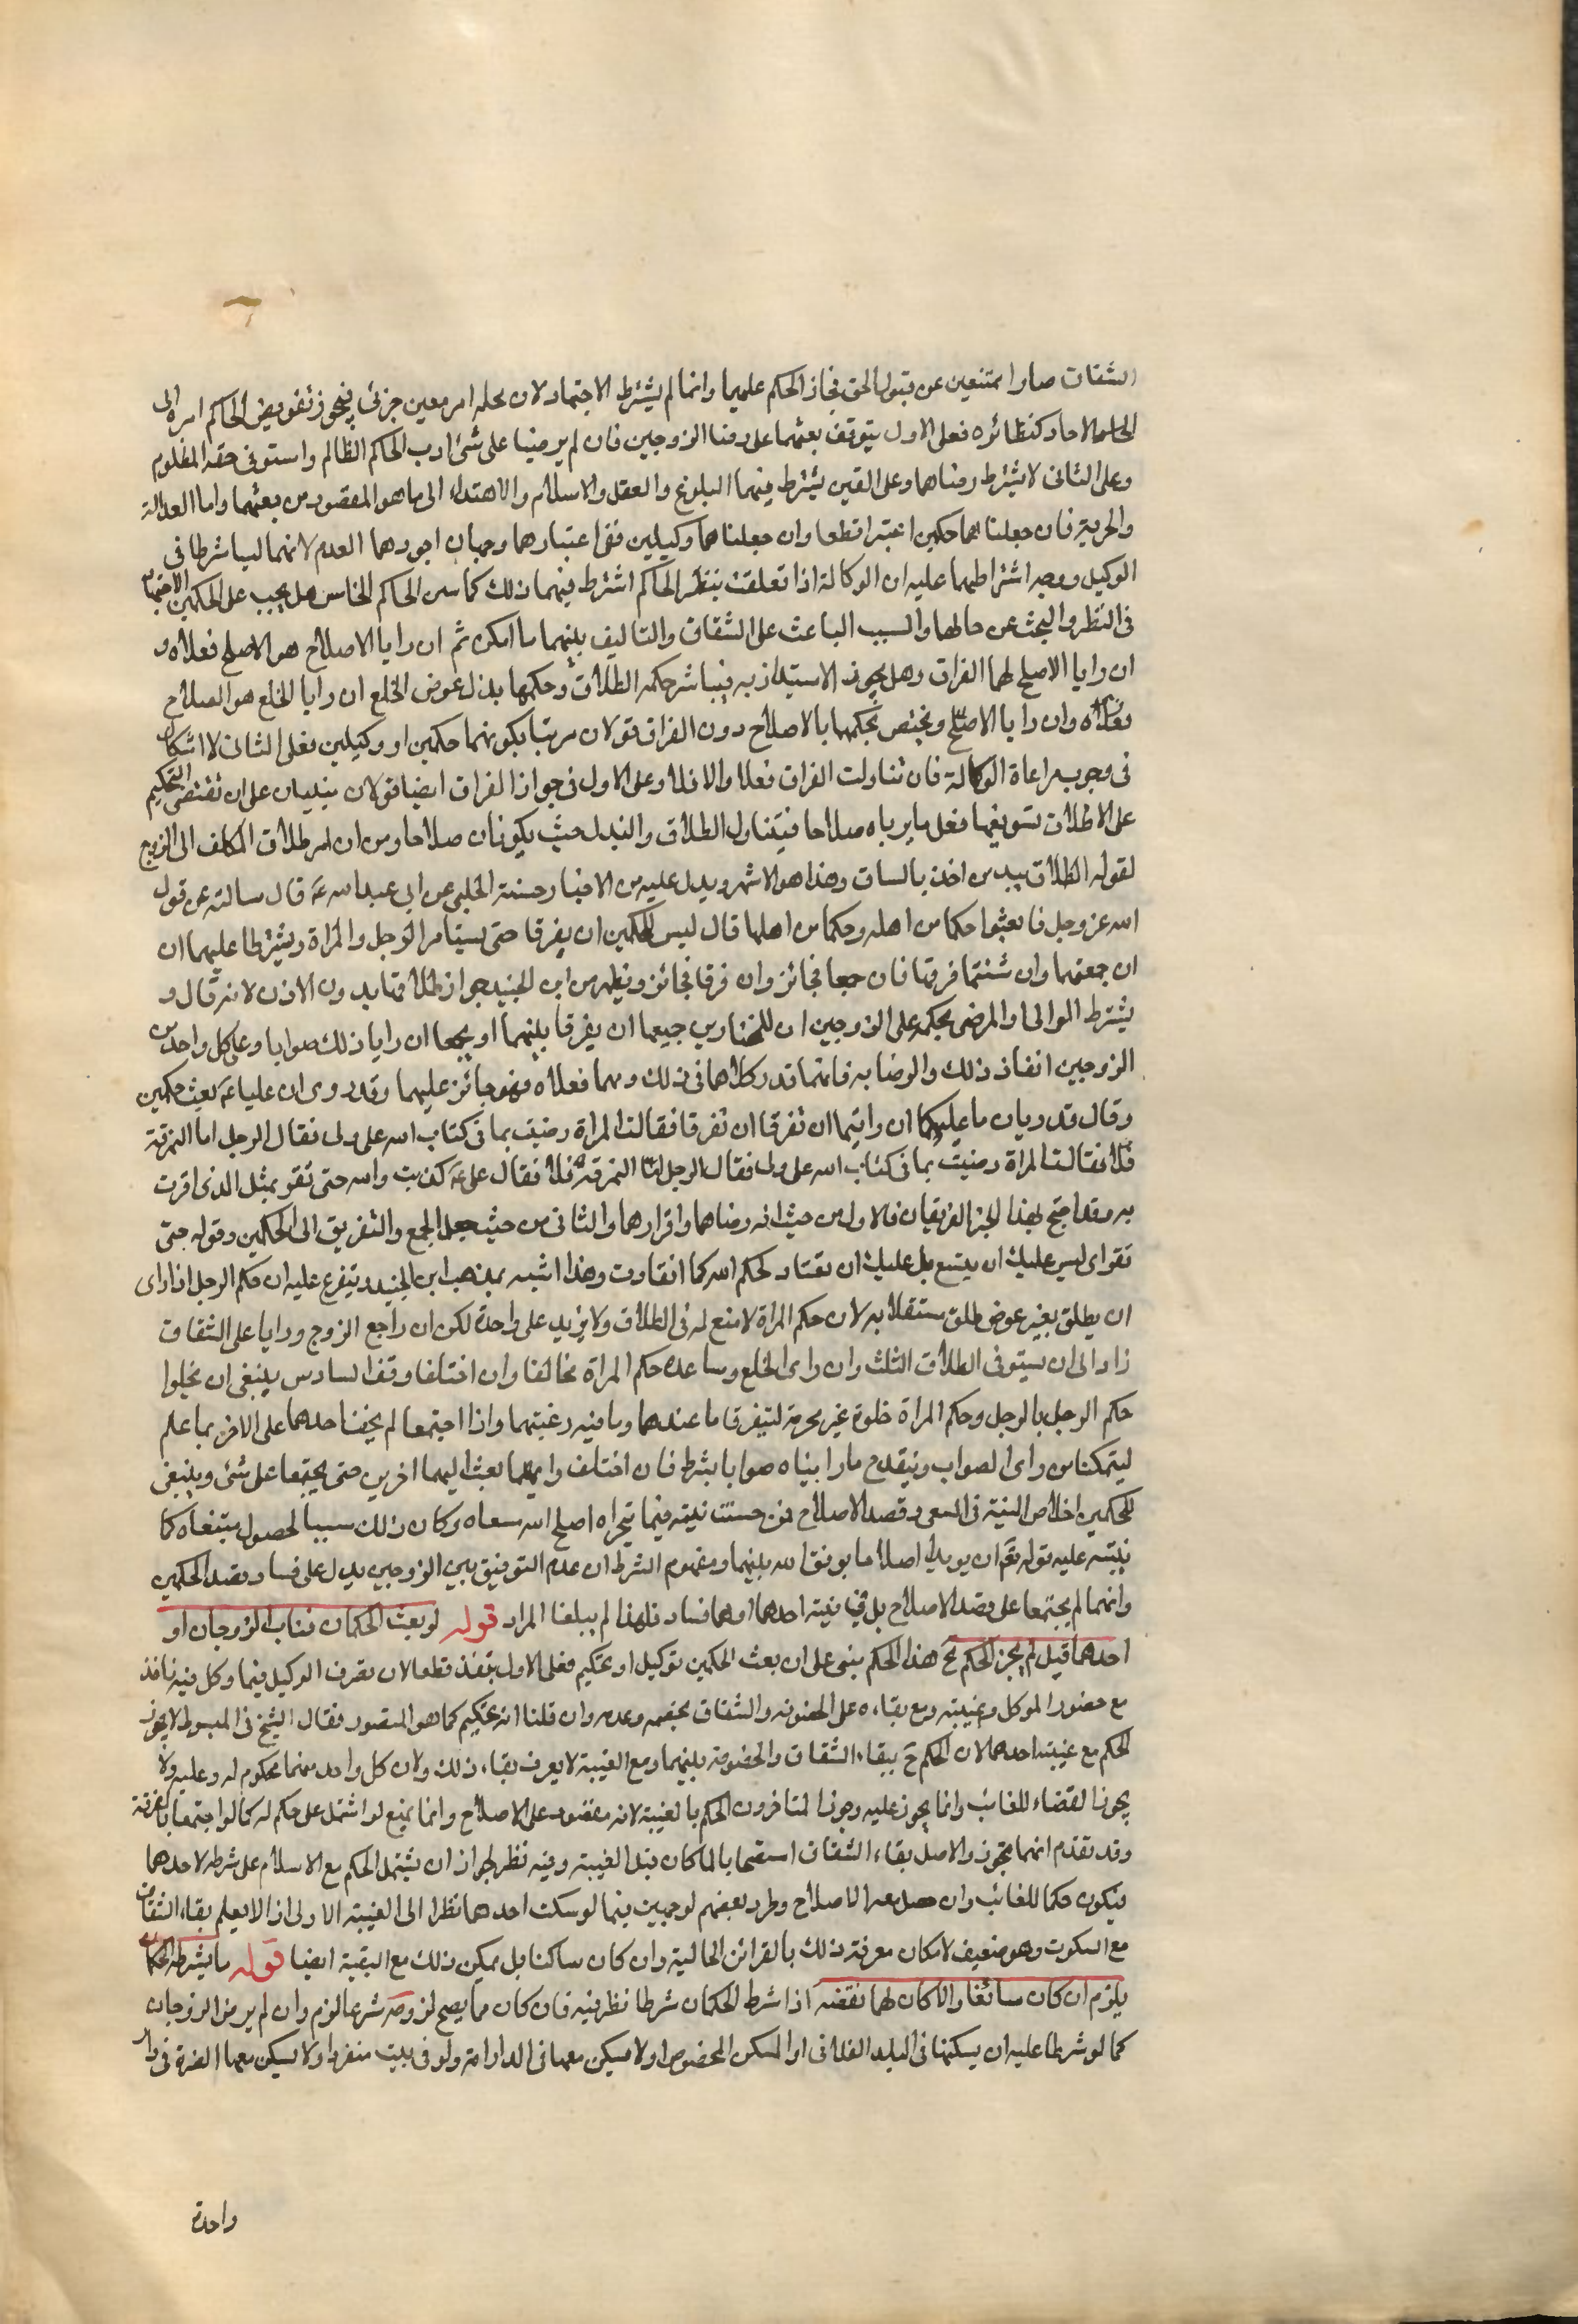 الشقاق صارا ممتنعين عن قبول الحق فجاز الحكم عليهما وانما لم يشترط الاجتهاد لان محله امر معين جزئى فيجوز تفويض الحاكم امره الى
الاحاد كنظائره فعلى الاول يتوقف بعثهما على رضا الزوجين فان لم يرضيا على شئ ادب الحاكم الظالم واستوفى حقه المظلوم
وعلى الثانى لا يشترط رضاهما وعلى القولين يشترط فيهما البلوغ والعقل والاسلام والاهتداء الى ما هو المقصود من بعثهما واما العدالة
والحرية فان جعلناهما حكمين اعتبرا قطعا وان جعلناهما وكيلين ففى اعتبارهما وجهان اجودهما العدم لانهما ليسا شرطا فى
الوكيل ووجه اشتراطهما عليه ان الوكالة اذا تعلقت بنظر الحاكم اشترط فيهما ذلك كما مين الحاكم الخامس هل يجب على الحكمين الاجتهاد
فى النظر والبحث عن حالهما والسبب الباعث على الشقاق والتاليف بينهما ما امكن ثم ان رايا الاصلاح هو الاصلح فعلاه و
ان رايا الاصلح لهما الفراق وهل يجوز الاستبداد به فيباشر حكمه الطلاق وحكمها بذل عوض الخلع ان رايا الخلع هو الصلاح
فعلاه وان رايا الاصلح ويختص تحكمهما بالاصلاح دون الفراق قولان مرتبا بكونهما حكمين او وكيلين فعلى الثانى لا اشكال
فى وجوب مراعاة الوكالة فان تناولت الفراق فعلا والا فلا وعلى الاول فى جواز الفراق ايضا قولان مبنيان على ان تقتضى التحكيم
على الاطلاق تسويغهما فعل ما يرياه صلاحا فيتناول الطلاق والبذل حيث يكونان صلاحا ومن ان امر طلاق المكلف الى الزوج
لقوله الطلاق بيد من اخذ بالساق وهذا هو الاشهر ويدل عليه من الاخبار حسنة الحلبى عن ابى عبد الله ع قال سالته عن قول
الله عز وجل فابعثوا حكما من اهله وحكما من اهلها قال ليس للحكمين ان يفرقا حتى يستامر الرجل والمراة ويشترطا عليهما ان
ان جمعتهما وان شئتما فرقتما فان جمعا فجائز وان فرقا فجائز ويظهر من ابن الجنيد جواز طلاقهما بدون الاذن لانه قال و
يشترط الوالى او المرضى بحكمه على الزوجين ان للمختارين جميعا ان يفرقا بينهما او يجمعا ان رايا ذلك صوابا وعلى كل واحد من
الزوجين انفاذ ذلك والرضا به فانهما قد وكلاهما فى ذلك ومهما فعلاه فهو جائز عليهما وقد روى ان عليا ع بعث حكمين
وقال تدريان ما عليكما ان رايتما ان تفرقا ان تفرقا فقالت المراة رضيت بما فى كتاب الله على ولى فقال الرجل اما الفرقة
فلا فقالت المراة رضيت بما فى كتاب الله على ولى فقال الرجل اما الفرقة فلا فقال على ع كذبت والله حتى تقر بمثل الذى اقرت
به وقد احتج بهذا الخبر الفريقان فالاول من حيث انه رضاهما واقرارهما والثانى من حيث جعل الجمع والتفريق الى الحكمين وقوله حتى
تقر اى ليس عليك ان يمتنع بل عليك ان تنقاد لحكم الله كما انقادت وهذا اشبه بمذهب ابن الجنيد ويتفرع عليه ان حكم الرجل اذا راى
ان يطلق بغير عوض طلق مستقلا به لان حكم المراة لا منع له فى الطلاق ولا يزيد على واحدة لكن ان راجع الزوج ورايا على الشقاق
زاد الى ان يستوفى الطلاق الثلث وان راى الخلع وساعده حكم المراة تخالعا وان اختلفا وقف السادس ينبغى ان يخلوا
حكم الرجل بالرجل وحكم المراة خلوة غير محرمة لتيفرقا ما عندهما وما فيه رغبتهما واذا اجتمعا لم يخف احدهما على الاخر بما علم
ليتمكنا من راى الصواب ويتقدم ما رابياه صوابا بشرط فان اختلف رايهما بعث اليهما اخرين حتى يجتمعا على شئ وينبغى
للحكمين اخلاص النية فى السعى وقصد الاصلاح فمن حسنت نيته فيما تحراه اصلح الله مسعاه وكان ذلك سببا لحصول مبتغاه كما
ينبه عليه قوله تع ان يريدا اصلاحا يوفق الله بينهما ومفهوم الشرط ان عدم التوفيق بين الزوجين يدل على فساد قصد الحكمين
وانهما لم يجتمعا على قصد الاصلاح بل فى نية احدهما او هما فساد فلهذا لم يبلغا المراد قوله لو بعث الحكمان فغاب الزوجان او
احدهما قيل لم يجز الحكم الخ هذا الحكم مبنى على ان بعث الحكمين توكيل او تحكيم فعلى الاول ينفذ قطعا لان تصرف الوكيل فيما وكل فيه نافذ
مع حضور الموكل وغيبته ومع بقائه على الخصومة والشقاق بخصمه وعدمه وان قلنا انه تحكيم كما هو المقصود فقال الشيخ فى المبسوط لا يجوز
الحكم مع غيبة احدهما لان الحكم ح ببقاء الشقاق والخصومة بينهما ومع الغيبة لا يعرف بقاء ذلك ولان كل واحد منهما محكوم له وعليه ولا
يجوز القضاء للغائب وانما يجوز عليه وجوز المتاخرون الحكم بالغيبة لانه مقصور على الاصلاح وانما يمنع لو اشتمل على حكم له كما لو اجتمعا بالفرقة
وقد تقدم انهما يجوز والاصل بقاء الشقاق استصحابا لما كان قبل الغيبة وفيه نظر لجواز ان يشتمل الحكم مع الاسلام على شرطه لاحدهما
فيكون حكما للغائب وان حصل معه الاصلاح وطرد بعضهم لوجهين فيما لو سكت احدهما نظرا الى الغيبة الاولى اذ لا يعلم بقاء الشقاق
مع السكوت وهو ضعيف لامكان معرفة ذلك بالقرائن الحالية وان كان ساكتا بل يمكن ذلك مع الغيبة ايضا قوله ما يشترطه الحكمان
يلزم ان كان سائغا والا كان لهما نقضه اذا شرط الحكمان شرطا نظر فيه فان كان مما يصح لزومه شرعا لزم وان لم يرض الزوجان
كما لو شرطا عليه ان يسكنها فى البلد الفلانى او المسكن المخصوص او لا يسكن معها فى الدار امه ولو فى بيت منفرد او لا يسكن معها الضرة فى دار
واحدة